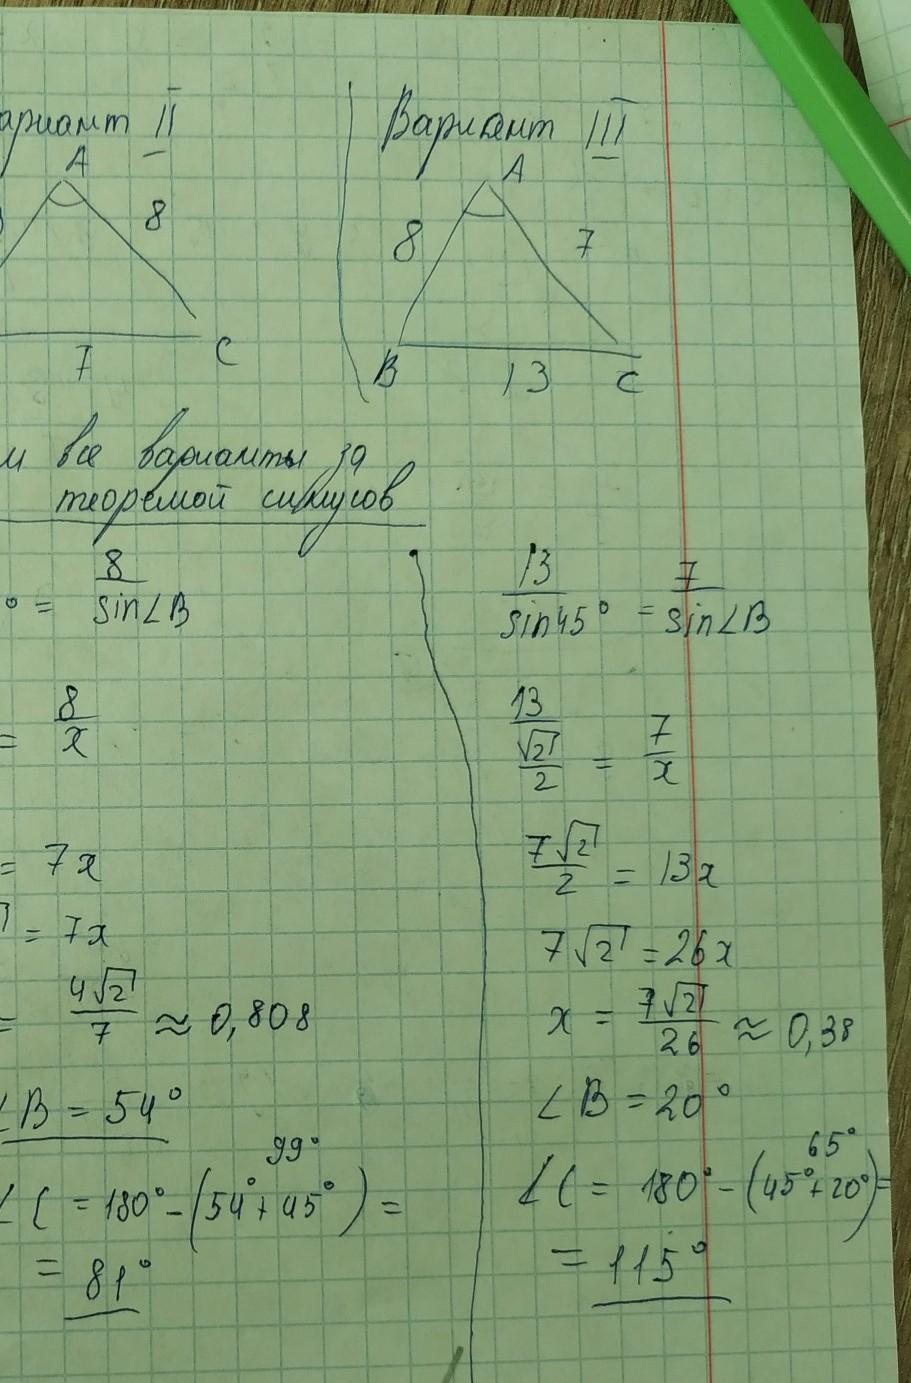 ариант II
Вариант III
A
8
7
C
A
8
7
B
13
C
м все варианты за
теоремой синусов
° = 8/sin∠B
= 8/x
= 7x
= 7x
= 4√2/7 ≈ 0,808
∠B = 54°
99°
∠C = 180° - (54° + 45°) =
= 81°
13/sin45° = 7/sin∠B
13/(√2/2) = 7/x
7√2/2 = 13x
7√2 = 26x
x = 7√2/26 ≈ 0,38
∠B = 20°
65°
∠C = 180° - (45° + 20°) =
= 115°